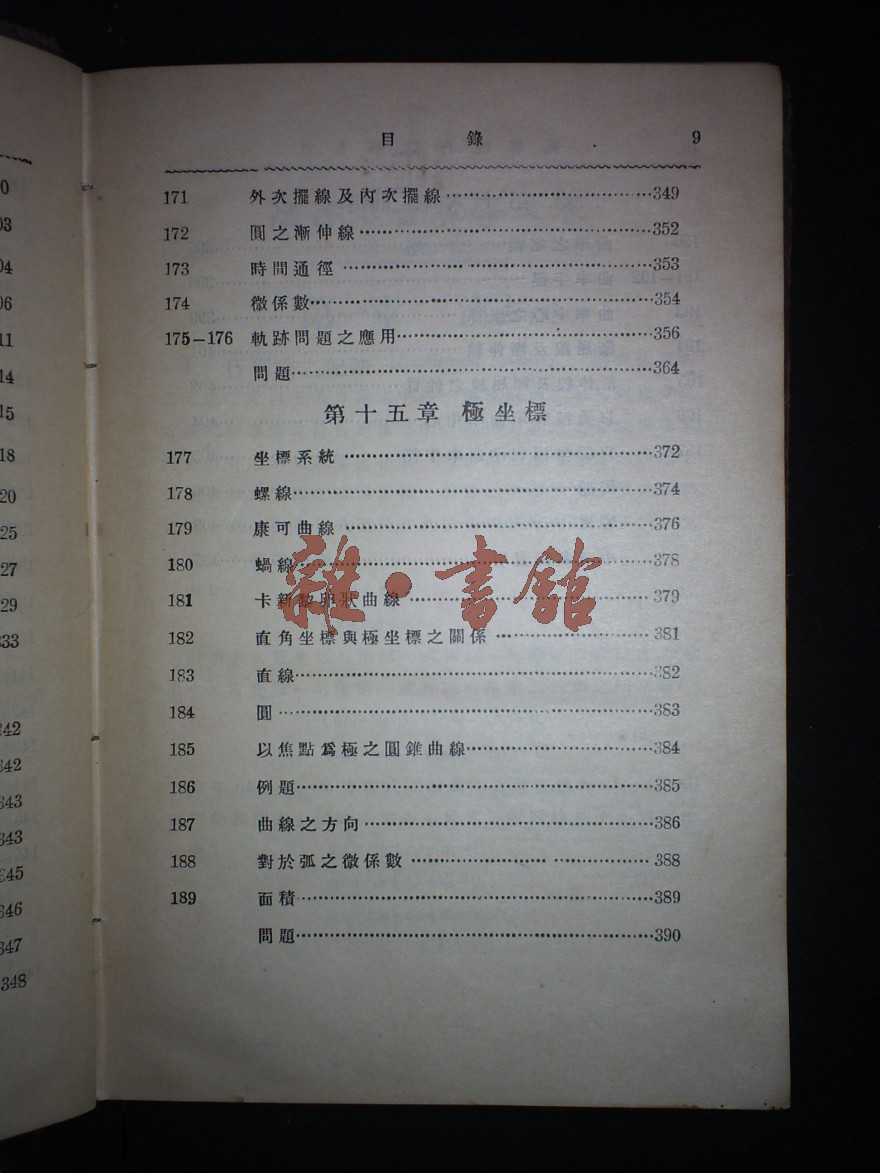 目錄 9
171 外次擺線及內次擺線 349
172 圓之漸伸線 352
173 時間通徑 353
174 微係數 354
175–176 軌跡問題之應用 356
問題 364
第十五章 極坐標
177 坐標系統 372
178 螺線 374
179 康可曲線 376
180 蝸線 378
181 卡新黎卵狀曲線 379
182 直角坐標與極坐標之關係 381
183 直線 382
184 圓 383
185 以焦點爲極之圓錐曲線 384
186 例題 385
187 曲線之方向 386
188 對於弧之微係數 388
189 面積 389
問題 390
雜·書館
342
343
343
345
346
347
348